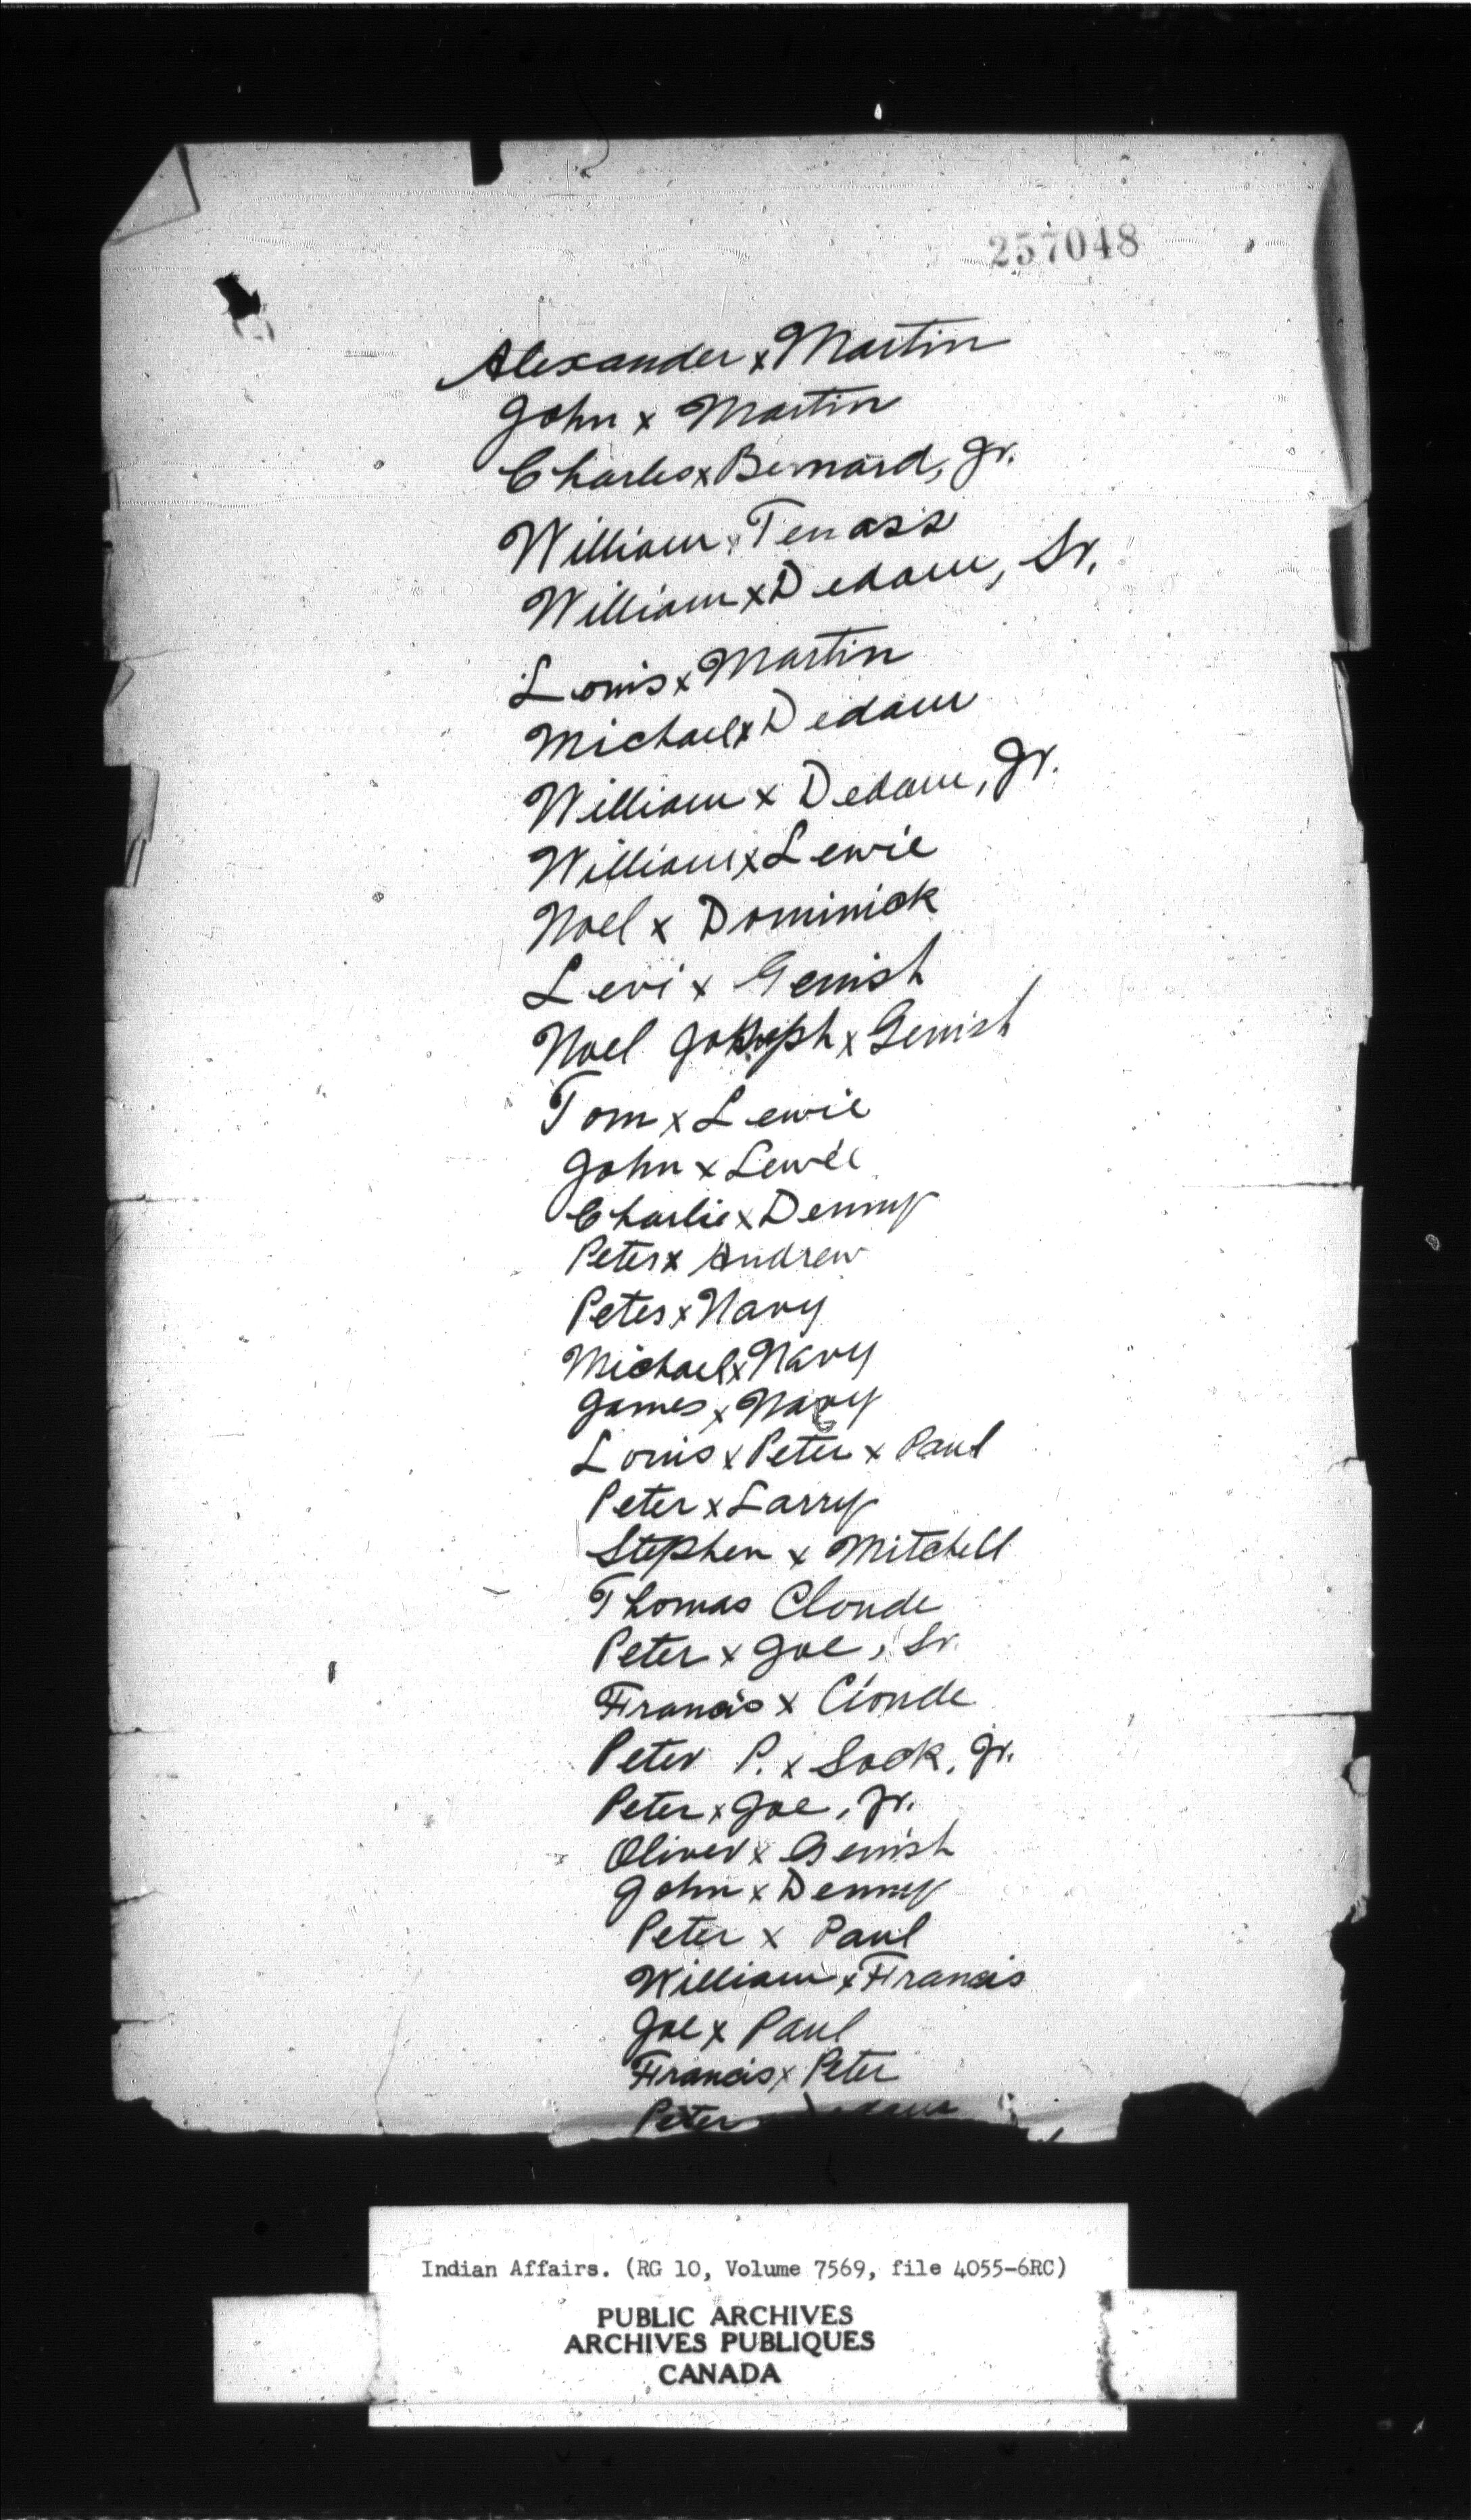 257048
Alexander x Martin
John x Martin
Charles x Bernard, Jr.
William x Tenass
William x Dedam, Sr.
Louis x Martin
Michael x Dedam
William x Dedam, Jr.
William x Lewie
Noel x Dominick
Levi x Genish
Noel Joseph x Genish
Tom x Lewie
John x Lewie
Charlie x Denny
Peter x Andrew
Peter x Navy
Michael x Navy
James x Navy
Louis x Peter x Paul
Peter x Larry
Stephen x Mitchell
Thomas Cloude
Peter x Joe, Sr.
Francis x Cloude
Peter P. x Sock, Jr.
Peter x Joe, Jr.
Oliver x Genish
John x Denny
Peter x Paul
William x Francis
Joe x Paul
Francis x Peter
Peter
Indian Affairs. (RG 10, Volume 7569, file 4055-6RC)
PUBLIC ARCHIVES
ARCHIVES PUBLIQUES
CANADA